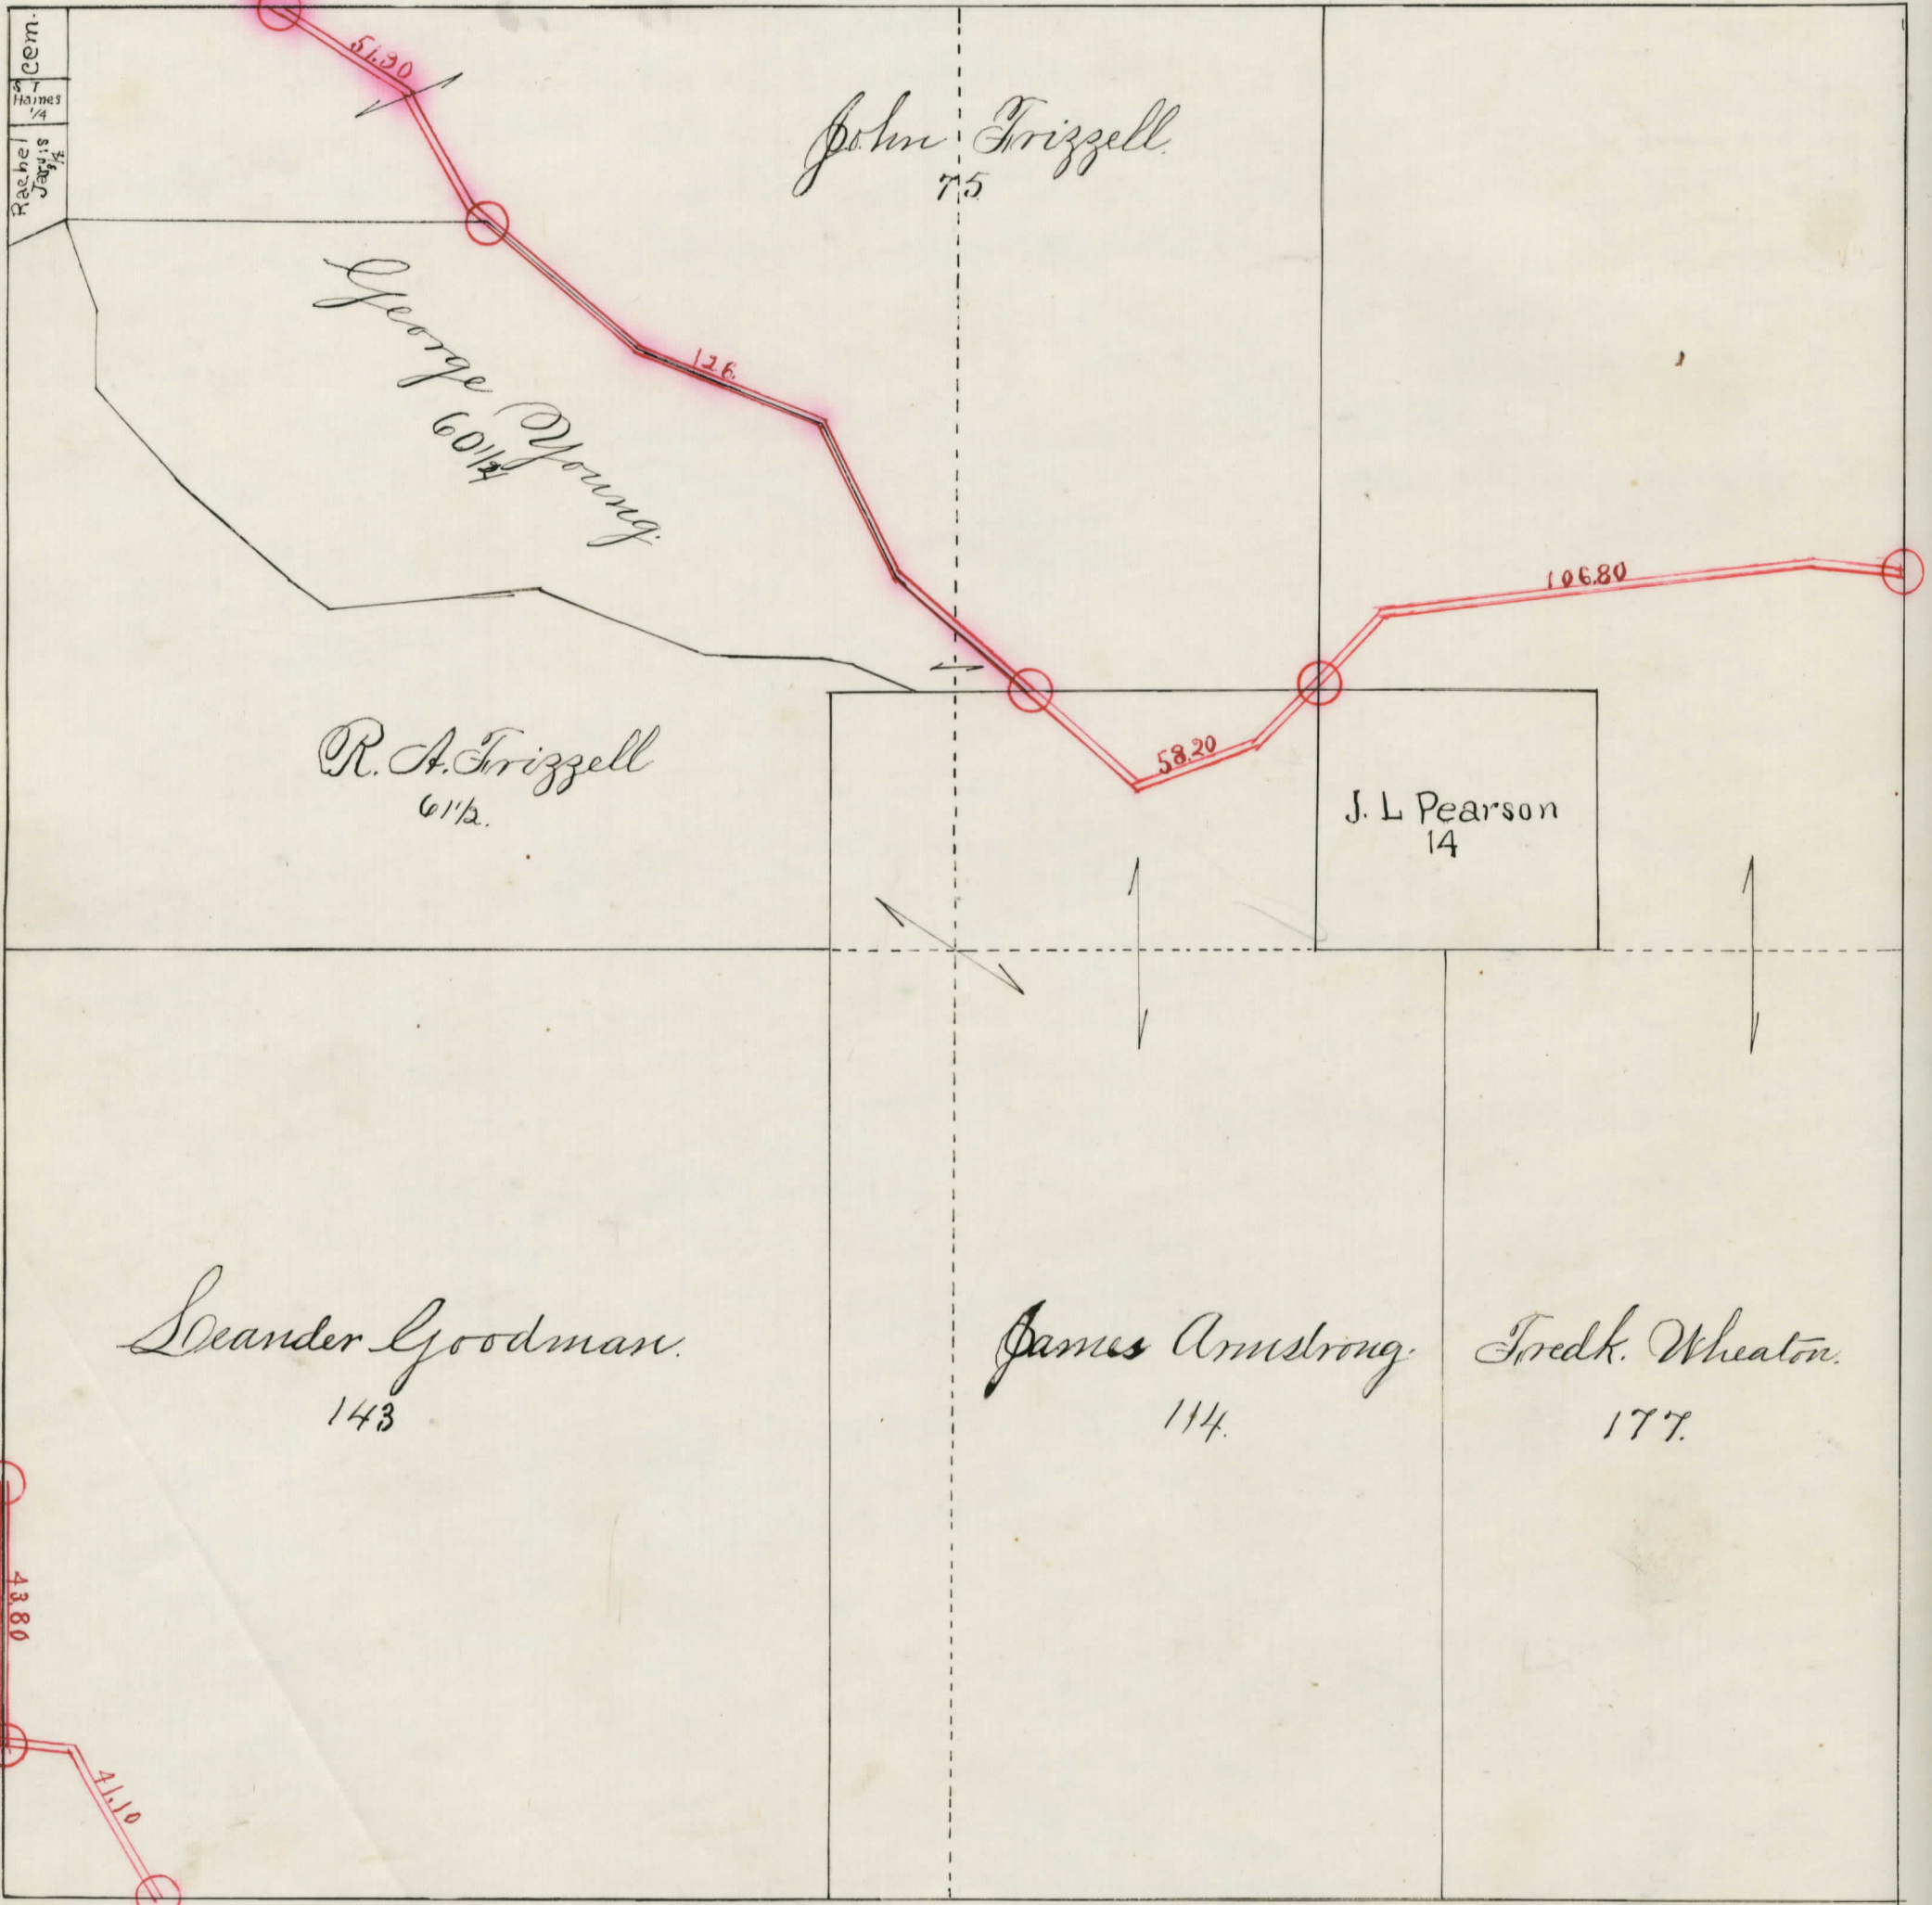 cem.
S T
Haines
1/4
Rachel
Jarvis
3/4
51.90
John Frizzell.
75
George Young.
126.
106.80
58.20
R. A. Frizzell
61 1/2.
J. L Pearson
14
Leander Goodman.
143
James Armstrong.
114.
Fredk. Wheaton.
177.
43.80
41.10